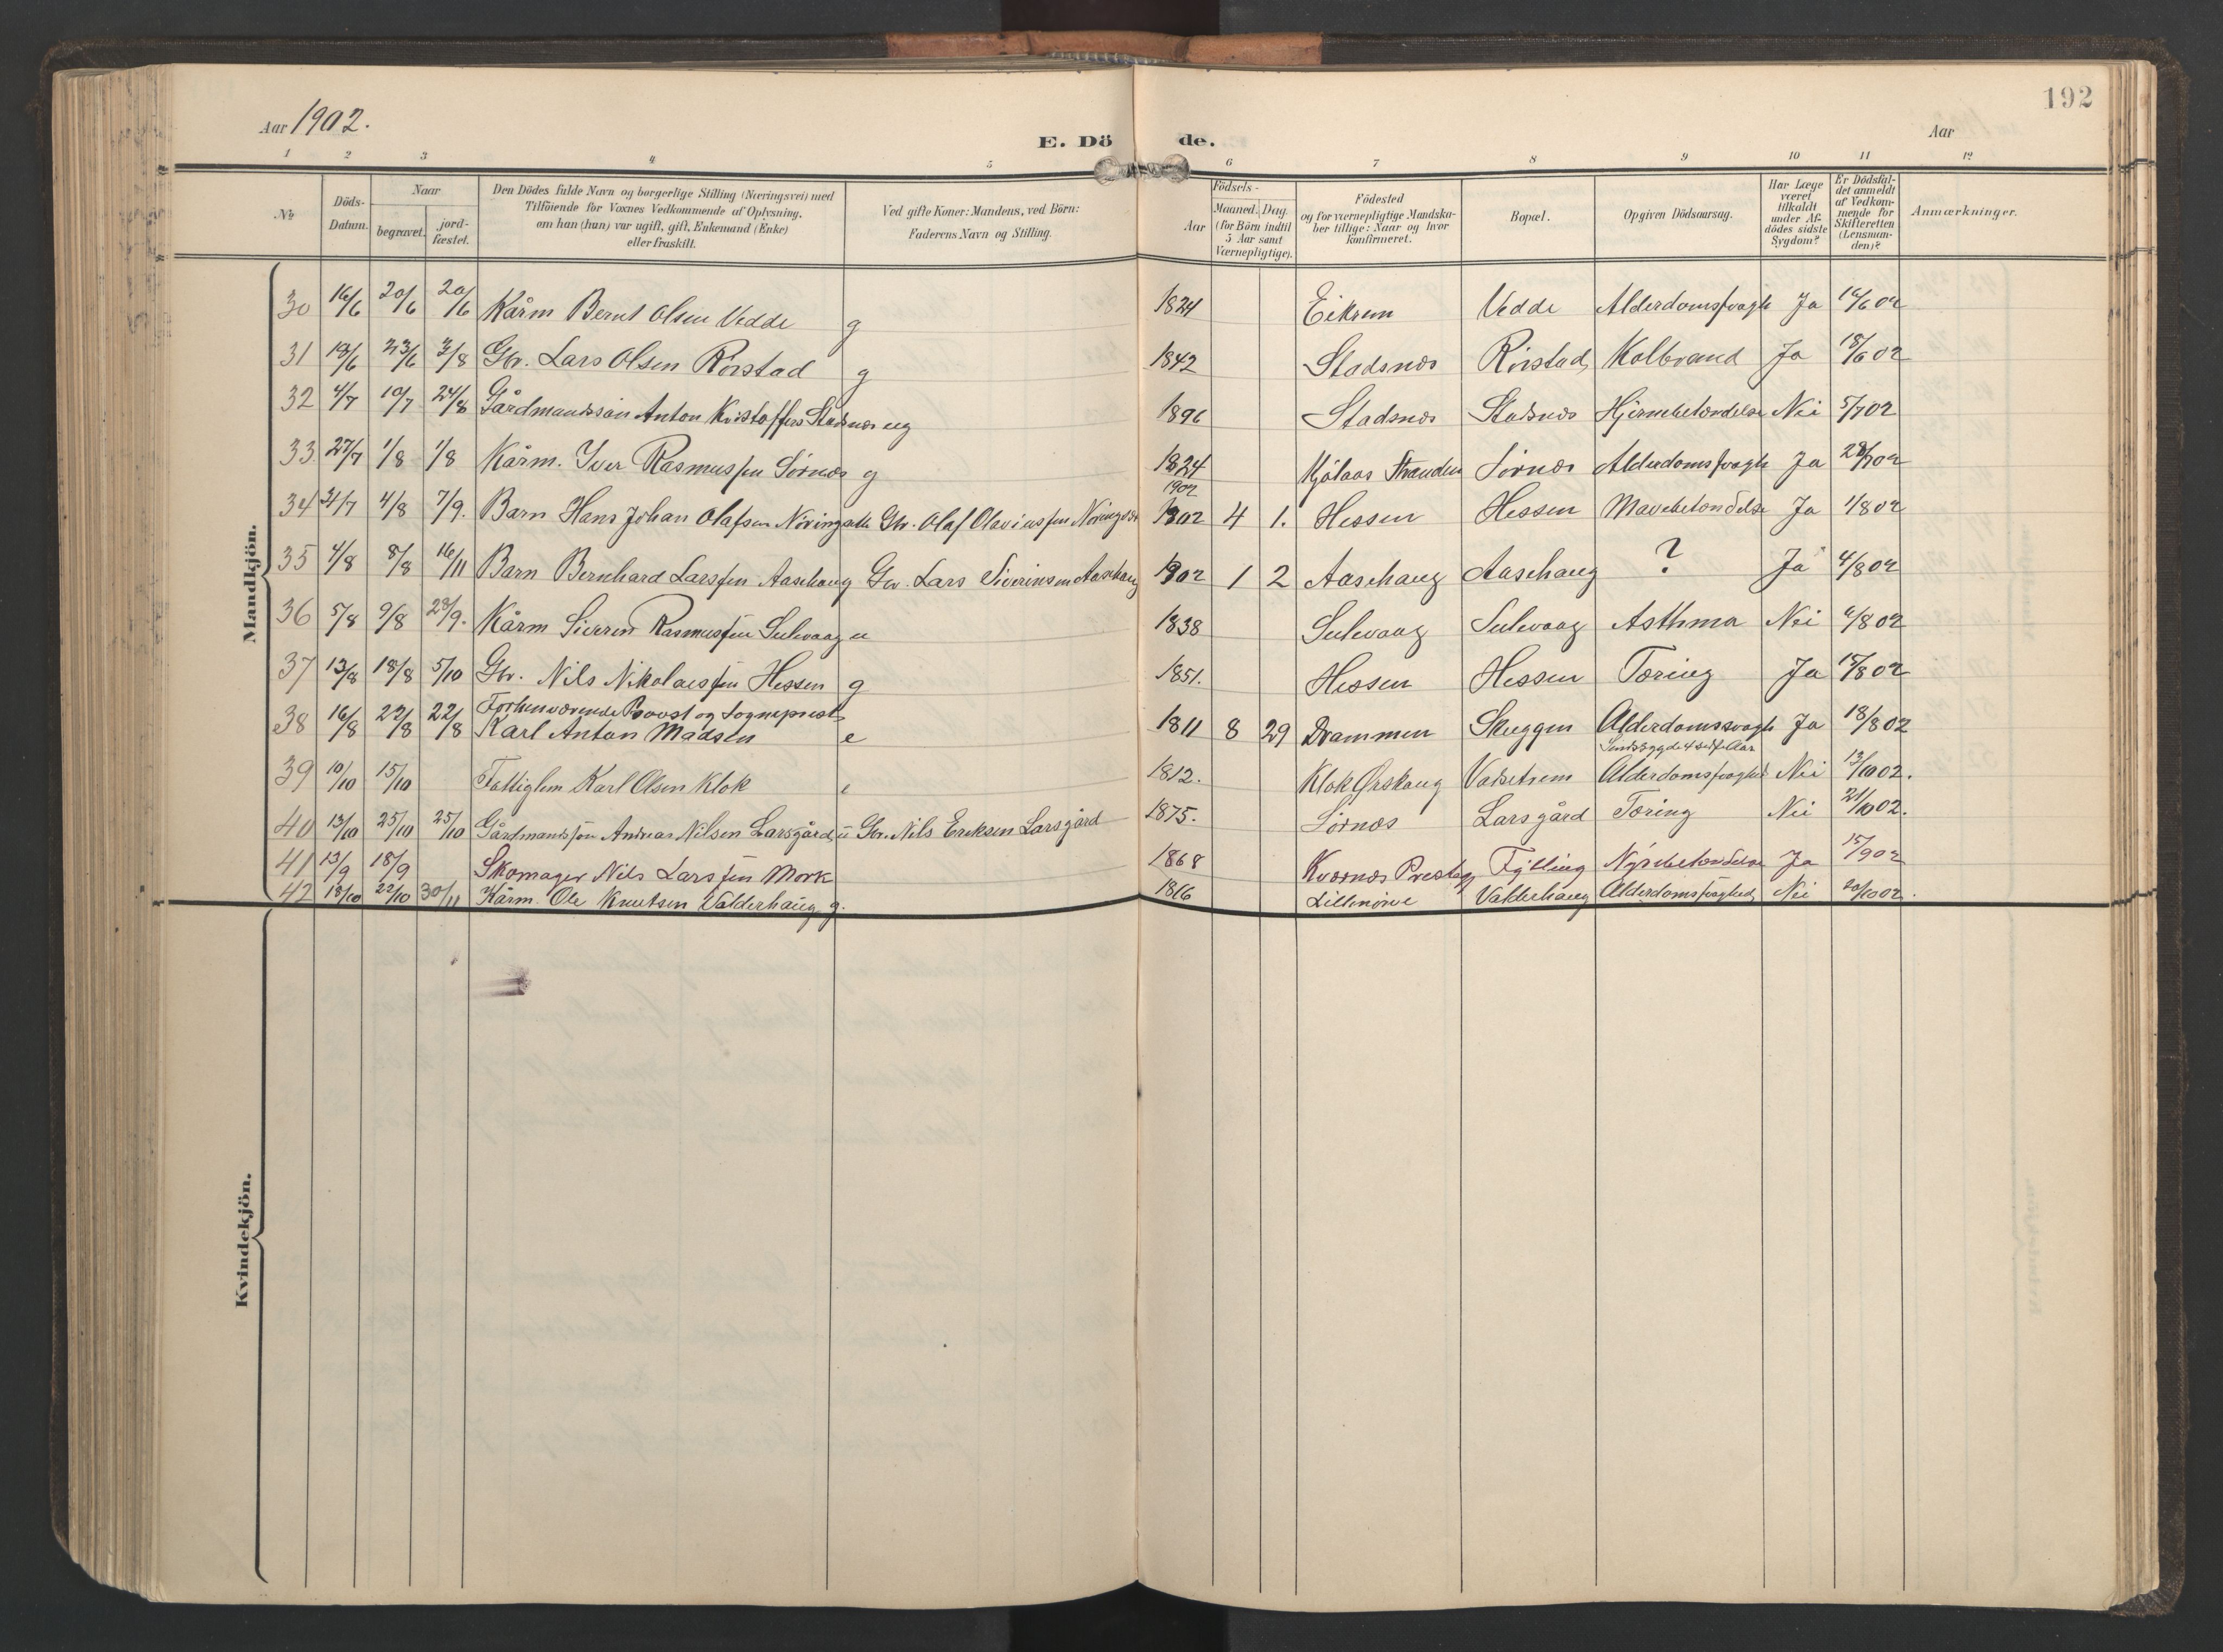 192
Aar 1902.
E. Dö de.
Aar
1 2 3 4 5 6 7 8 9 10 11 12
No
Döds-Datum.
Naar
begravet.
jord-fæstet.
Den Dödes fulde Navn og borgerlige Stilling (Næringsvei) med
Tilföiende for Voxnes Vedkommende af Oplysning,
om han (hun) var ugift, gift, Enkemand (Enke)
eller fraskilt.
Ved gifte Koner: Mandens, ved Börn:
Faderens Navn og Stilling.
Födsels-
Aar
Maaned. Dag.
(for Börn indtil
5 Aar samt
Værnepligtige).
Födested
og for værnepligtige Mandska-
ber tillige: Naar og hvor
konfirmeret.
Bopæl.
Opgiven Dödsaarsag.
Har Læge
været
tilkaldt
under Af-
dödes sidste
Sygdom?
Er Dödsfal-
det anmeldt
af Vedkom-
mende for
Skifteretten
(Lensman-
den)?
Anmærkninger.
Mandkjön.
30 16/6 20/6 20/6 Kårm Bernt Olsen Vedde g 1824 Eikrem Vedde Alderdomssvagh Ja 16/6 02
31 18/6 23/6 3/8 Gbr. Lars Olsen Rörstad g 1842 Stadsnes Rörstad Kolbrand Ja 18/6 02
32 4/7 10/7 24/8 Gårdmandssön Anton Kristoffers Stadsnes ug 1896 Stadsnes Stadsnes Hjernebetændelse Nei 5/7 02
33 27/7 1/8 1/8 Kårm. Iver Rasmussen Sörnes g 1824 Kjölaas Stranden Sörnes Alderdomssvagh Ja 28/7 02
34 31/7 4/8 7/9. Barn Hans Johan Olafsen Nöringseth Gbr. Olaf Olaviussen Nöringset 1902 1902 4 1. Hessen Hessen Mavebetændelse Ja 1/8 02
35 4/8 8/8 16/11 Barn Bernhard Larssen Aasehaug Gbr. Lars Siverinsen Aasehaug 1902 1 2 Aasehaug Aasehaug ? Ja 4/8 02
36 5/8 9/8 28/9. Kårm Siverin Rasmussen Sulevaag u 1838 Sulevaag Sulevaag Asthma Nei 6/8 02
37 13/8 18/8 5/10 Gbr. Nils Nikolaissen Hessen g 1851. Hessen Hessen Tæring Ja 15/8 02
38 16/8 22/8 22/8 Forhenværende Provst og Sogneprest
Karl Anton Madsen e 1811 8 29 Drammen Skuggen Alderdomssvagh Ja 18/8 02
39 10/10 15/10 Fattiglem Karl Olsen Klok e 1812. Klok Ørskaug Vatsetrem Alderdomssvaghed Nei 13/10 02.
40 13/10 25/10 25/10 Gårdmandssön Andreas Nilsen Larsgård u Gbr. Nils Eriksen Larsgård 1875. Sörnes Larsgård Tæring Nei 21/10 02.
41 13/9 18/9 Skomager Nils Larssen Mork 1868 Kvernes Prestegj Fylling Nyrebetændelse Ja 15/9 02
42 18/10 22/10 30/11 Kårm. Ole Knutsen Valderhaug g. 1816 Lillenörve Valderhaug Alderdomssvaghed Nei 20/10 02.
Kvindekjön.